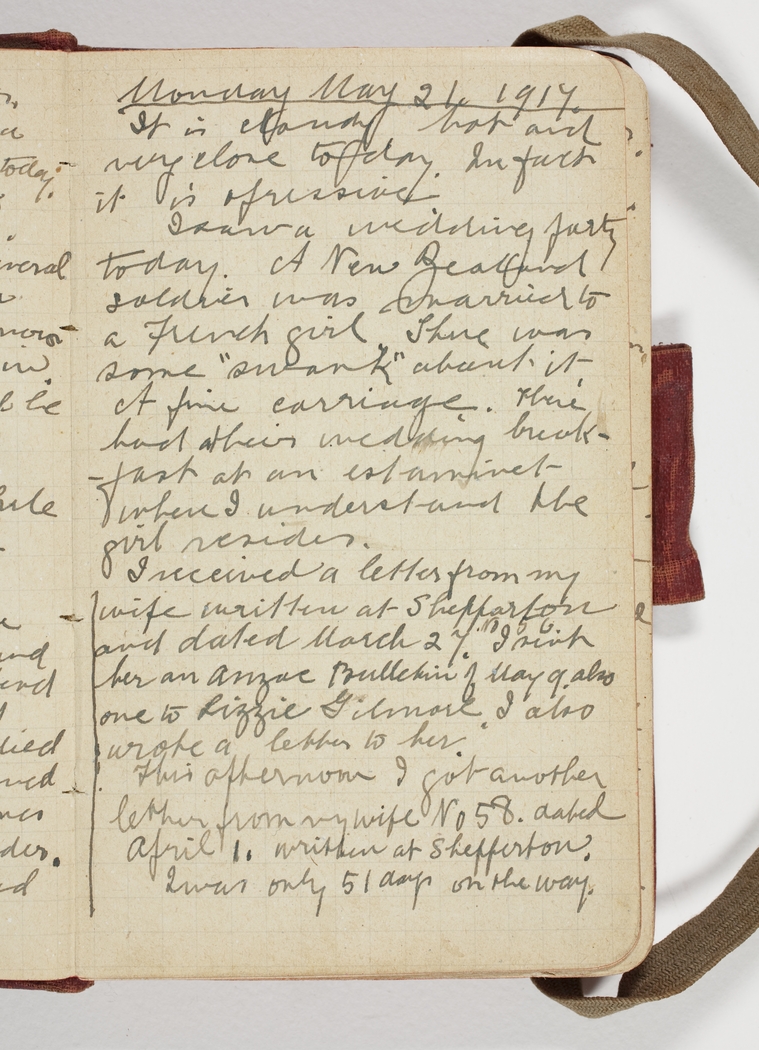 n,
a
today.
Monday May 21. 1917.
It is cloudy hot and
very close to day. In fact
it is opressive
I saw a wedding party
today. A New Zealand
soldier was married to
a French girl. There was
some "swank" about it
A fine carriage. There
had their wedding break-
-fast at an estaminet
where I understand the
girl resides.
I received a letter from my
wife written at Shepparton
and dated March 27. No 56. I sent
her an Anzac Bulletin of May 9 also
one to Lizzie Gilmore. I also
wrote a letter to her.
This afternoon I got another
letter from my wife No 58. dated
April 1. written at Shepperton.
I was only 51 days on the way.